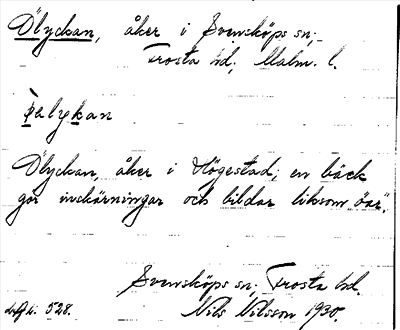 Ölyckan, åker i Svensköps sn;
Frosta hd; Malm. l.
Ölyckan, åker i Högestad; en bäck
gör inskärningar och bildar liksom "öar".
Svensköps sn; Frosta hd.
528. Nils Nilsson 1930.